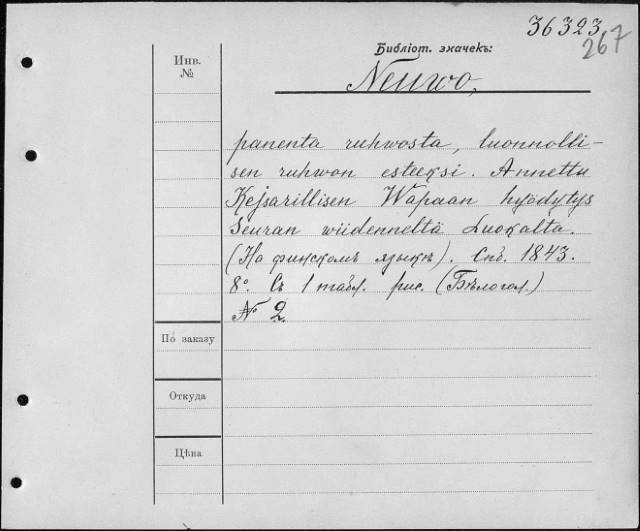 36323
267
Библіот. значекъ:
Инв.
№
Neuwo,
panenta ruhwosta, luonnolli-
sen ruhwon esteeksi. Annettu
Kejsarillisen Wapaan hyödytys
Seuran wiidenneltä Luokalta.
(На финскомъ языкѣ). Спб. 1843.
8°. Съ 1 табл. рис. (Бѣлогол.)
№ 2
По заказу
Откуда
Цѣна